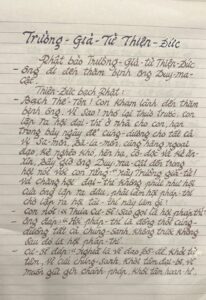 Trưởng-Giả-Tử Thiện-Đức
Phật bảo Trưởng-Giả-Tử Thiện-Đức
- Ông đi đến thăm bệnh ông Duy-ma-
Cật.
Thiện Đức bạch Phật:
- Bạch Thế-Tôn! Con kham lãnh đến thăm
bệnh ông. Vì sao? Nhớ lại thuở trước con
lập ra hội đại-thí ở nhà cha con, hạn
trong bảy ngày để cúng-dường cho tất cả
vị Sa-môn, Bà-la-môn, cùng hàng ngoại
đạo, kẻ nghèo khó, hèn hạ, cô độc và kẻ ăn
xin. Bấy giờ ông Duy-ma-cật đến trong
hội nói với con rằng: "Này Trưởng-giả-tử!
Vả chăng hội đại-thí không phải như hội
của ông lập ra đâu, phải làm hội pháp-thí
chớ lập ra hội tài-thí này làm gì?
- Con hỏi: "Thưa Cư-sĩ! Sao gọi là hội pháp-thí?
- Ông đáp: "Hội pháp-thí là đồng thời cúng-
dường tất cả chúng-sanh, không trước không
sau đó là hội pháp-thí.
- Cư-sĩ đáp: "Nghĩa là vì đạo Bồ-đề, khởi từ
tâm, vì cứu chúng-sanh, khởi tâm đại-bi, vì
muốn giữ gìn chánh-pháp, khởi tâm hoan-hỉ